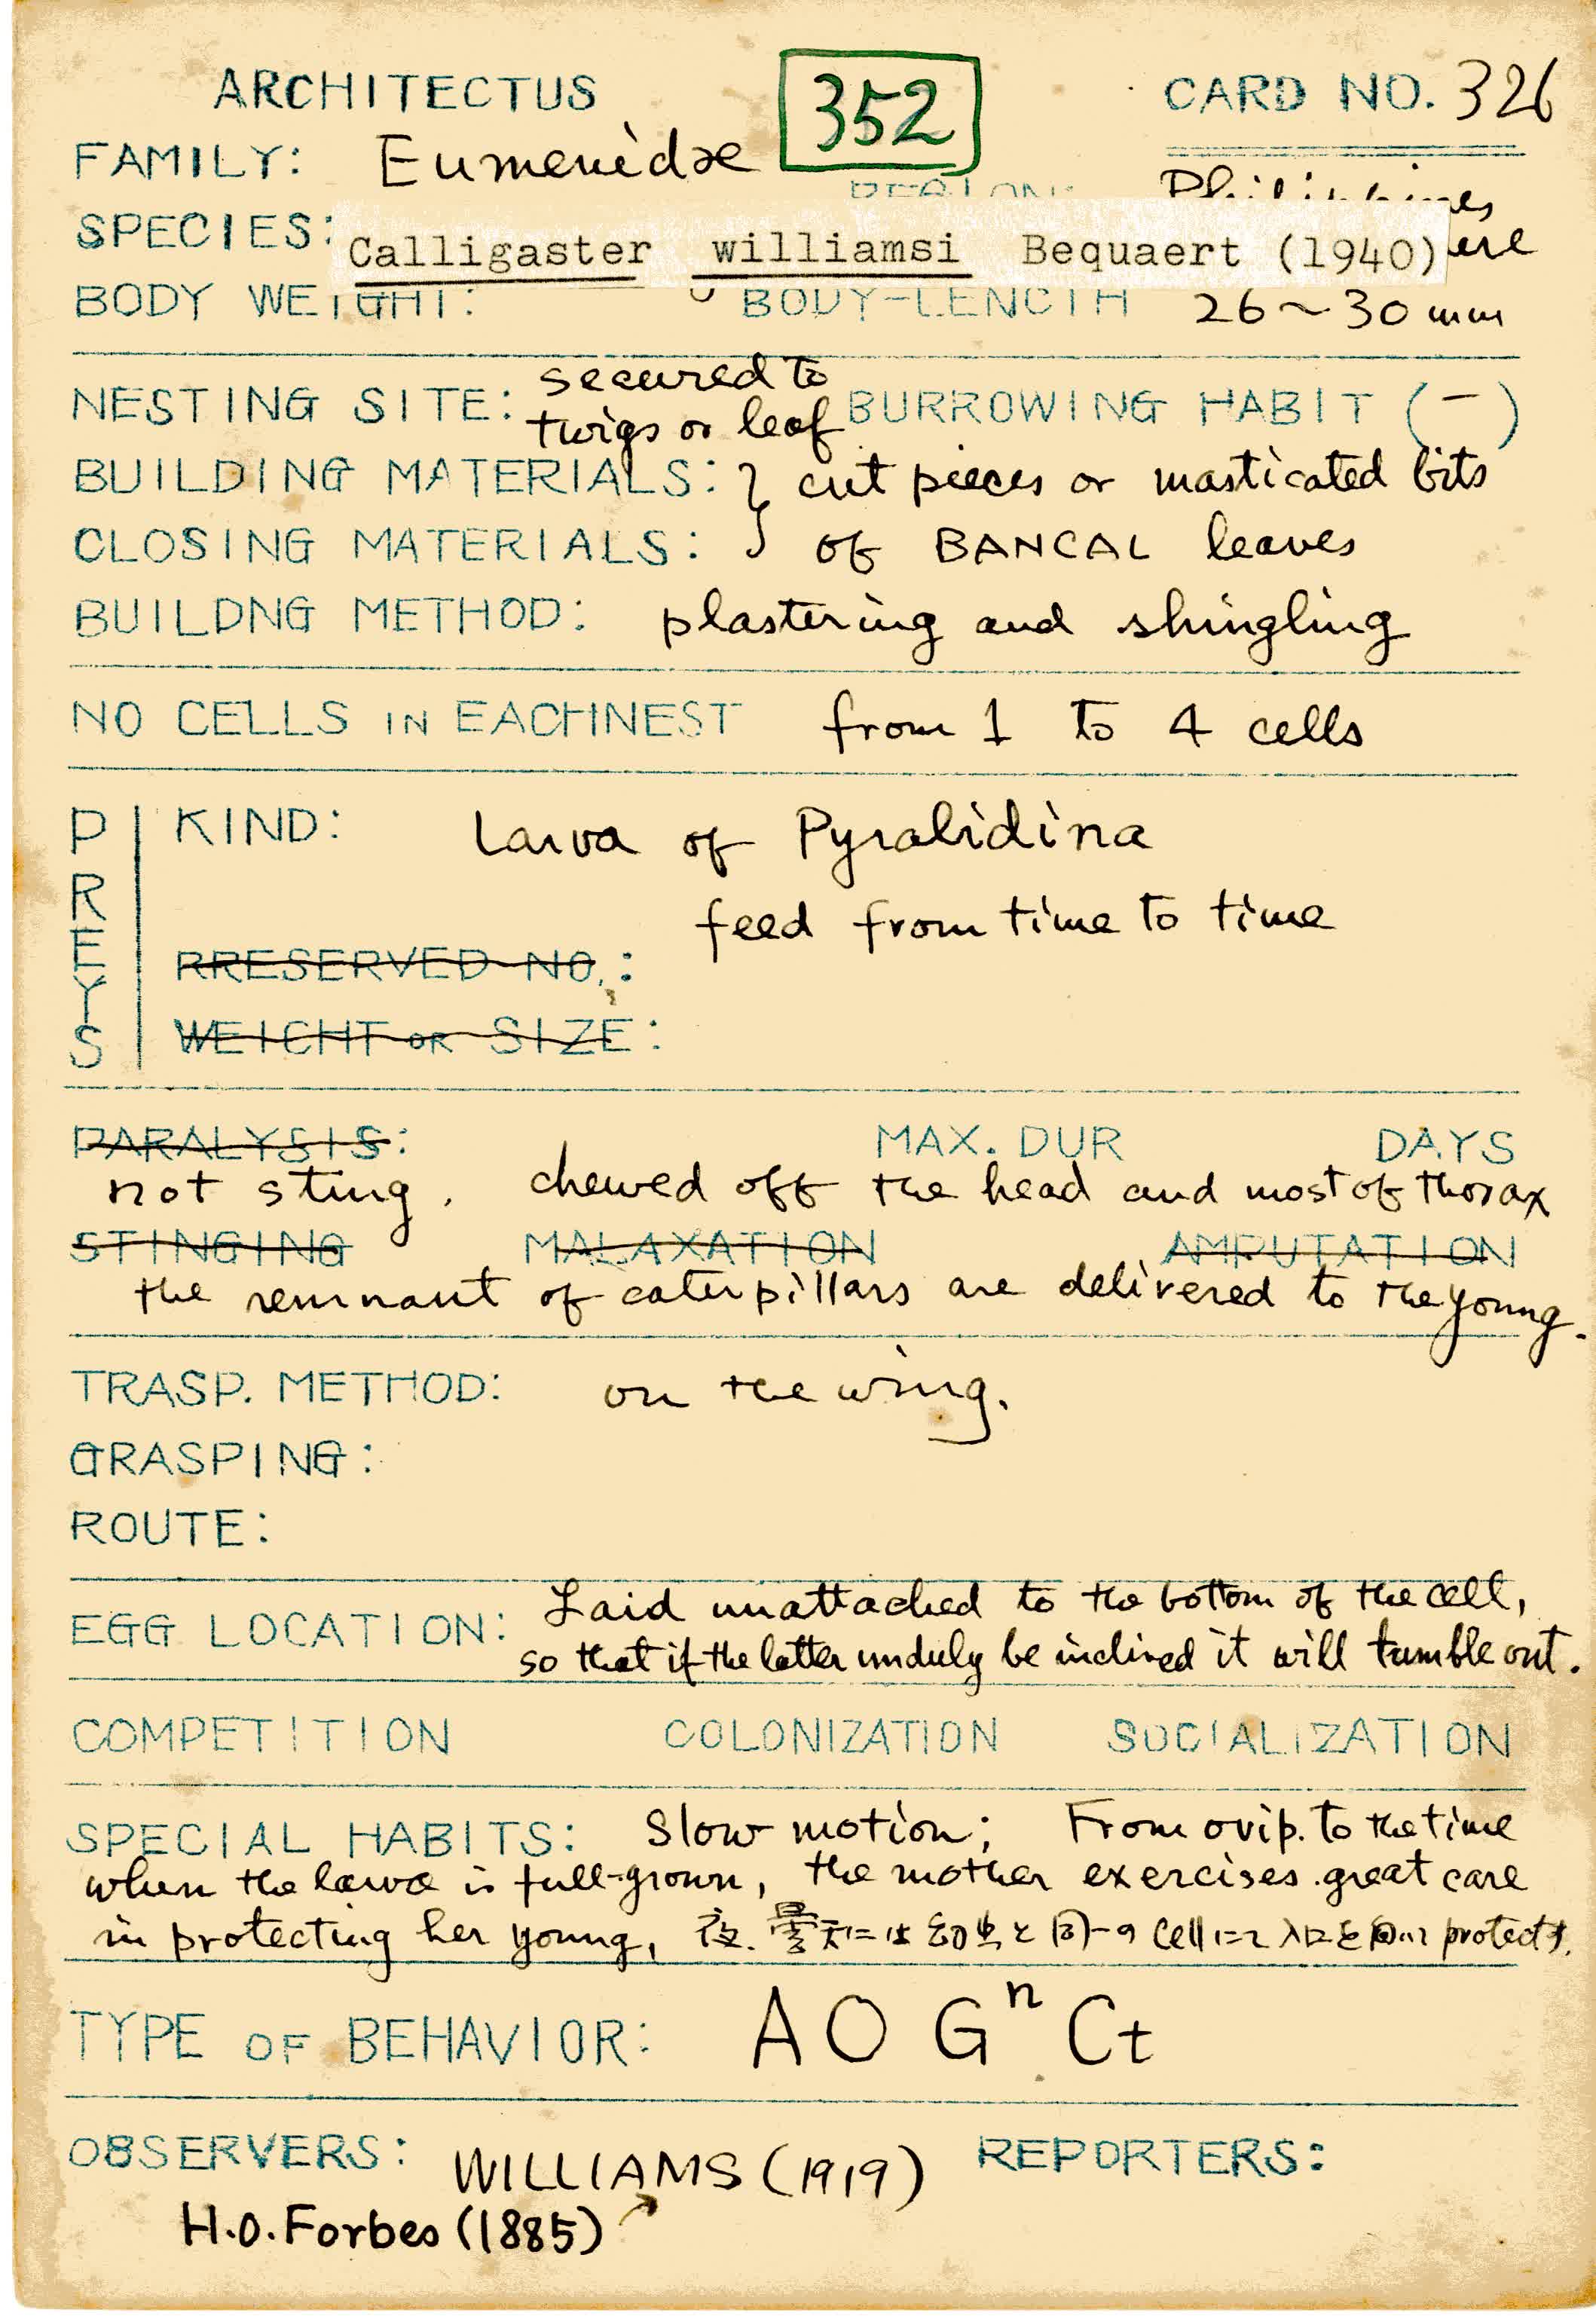 ARCHITECTUS 352 CARD NO. 326
FAMILY: Eumenidae
Philippines
SPECIES: Calligaster williamsi Bequaert (1940)
BODY WEIGHT: BODY-LENGTH 26~30mm
NESTING SITE: secured to twigs or leaf BURROWING HABIT (-)
BUILDING MATERIALS: } cut pieces or masticated bits
CLOSING MATERIALS: } of BANCAL leaves
BUILDNG METHOD: plastering and shingling
NO CELLS IN EACHNEST from 1 to 4 cells
PREYS
KIND: Larva of Pyralidina
feed from time to time
RRESERVED NO.:
WEIGHT OR SIZE:
PARALYSIS: MAX. DUR DAYS
not sting. chewed off the head and most of thorax
STINGING MALAXATION AMPUTATION
the remnant of caterpillars are delivered to the young.
TRASP. METHOD: on the wing.
GRASPING:
ROUTE:
EGG LOCATION: Laid unattached to the bottom of the cell,
so that if the latter unduly be inclined it will tumble out.
COMPETITION COLONIZATION SOCIALIZATION
SPECIAL HABITS: Slow motion; From ovip. to the time
when the larva is full-grown, the mother exercises great care
in protecting her young, 夜.曇天には幼虫と同一のCellにて入口を protectす.
TYPE OF BEHAVIOR: A O Gⁿ Ct
OBSERVERS: WILLIAMS (1919) REPORTERS:
H.O. Forbes (1885)